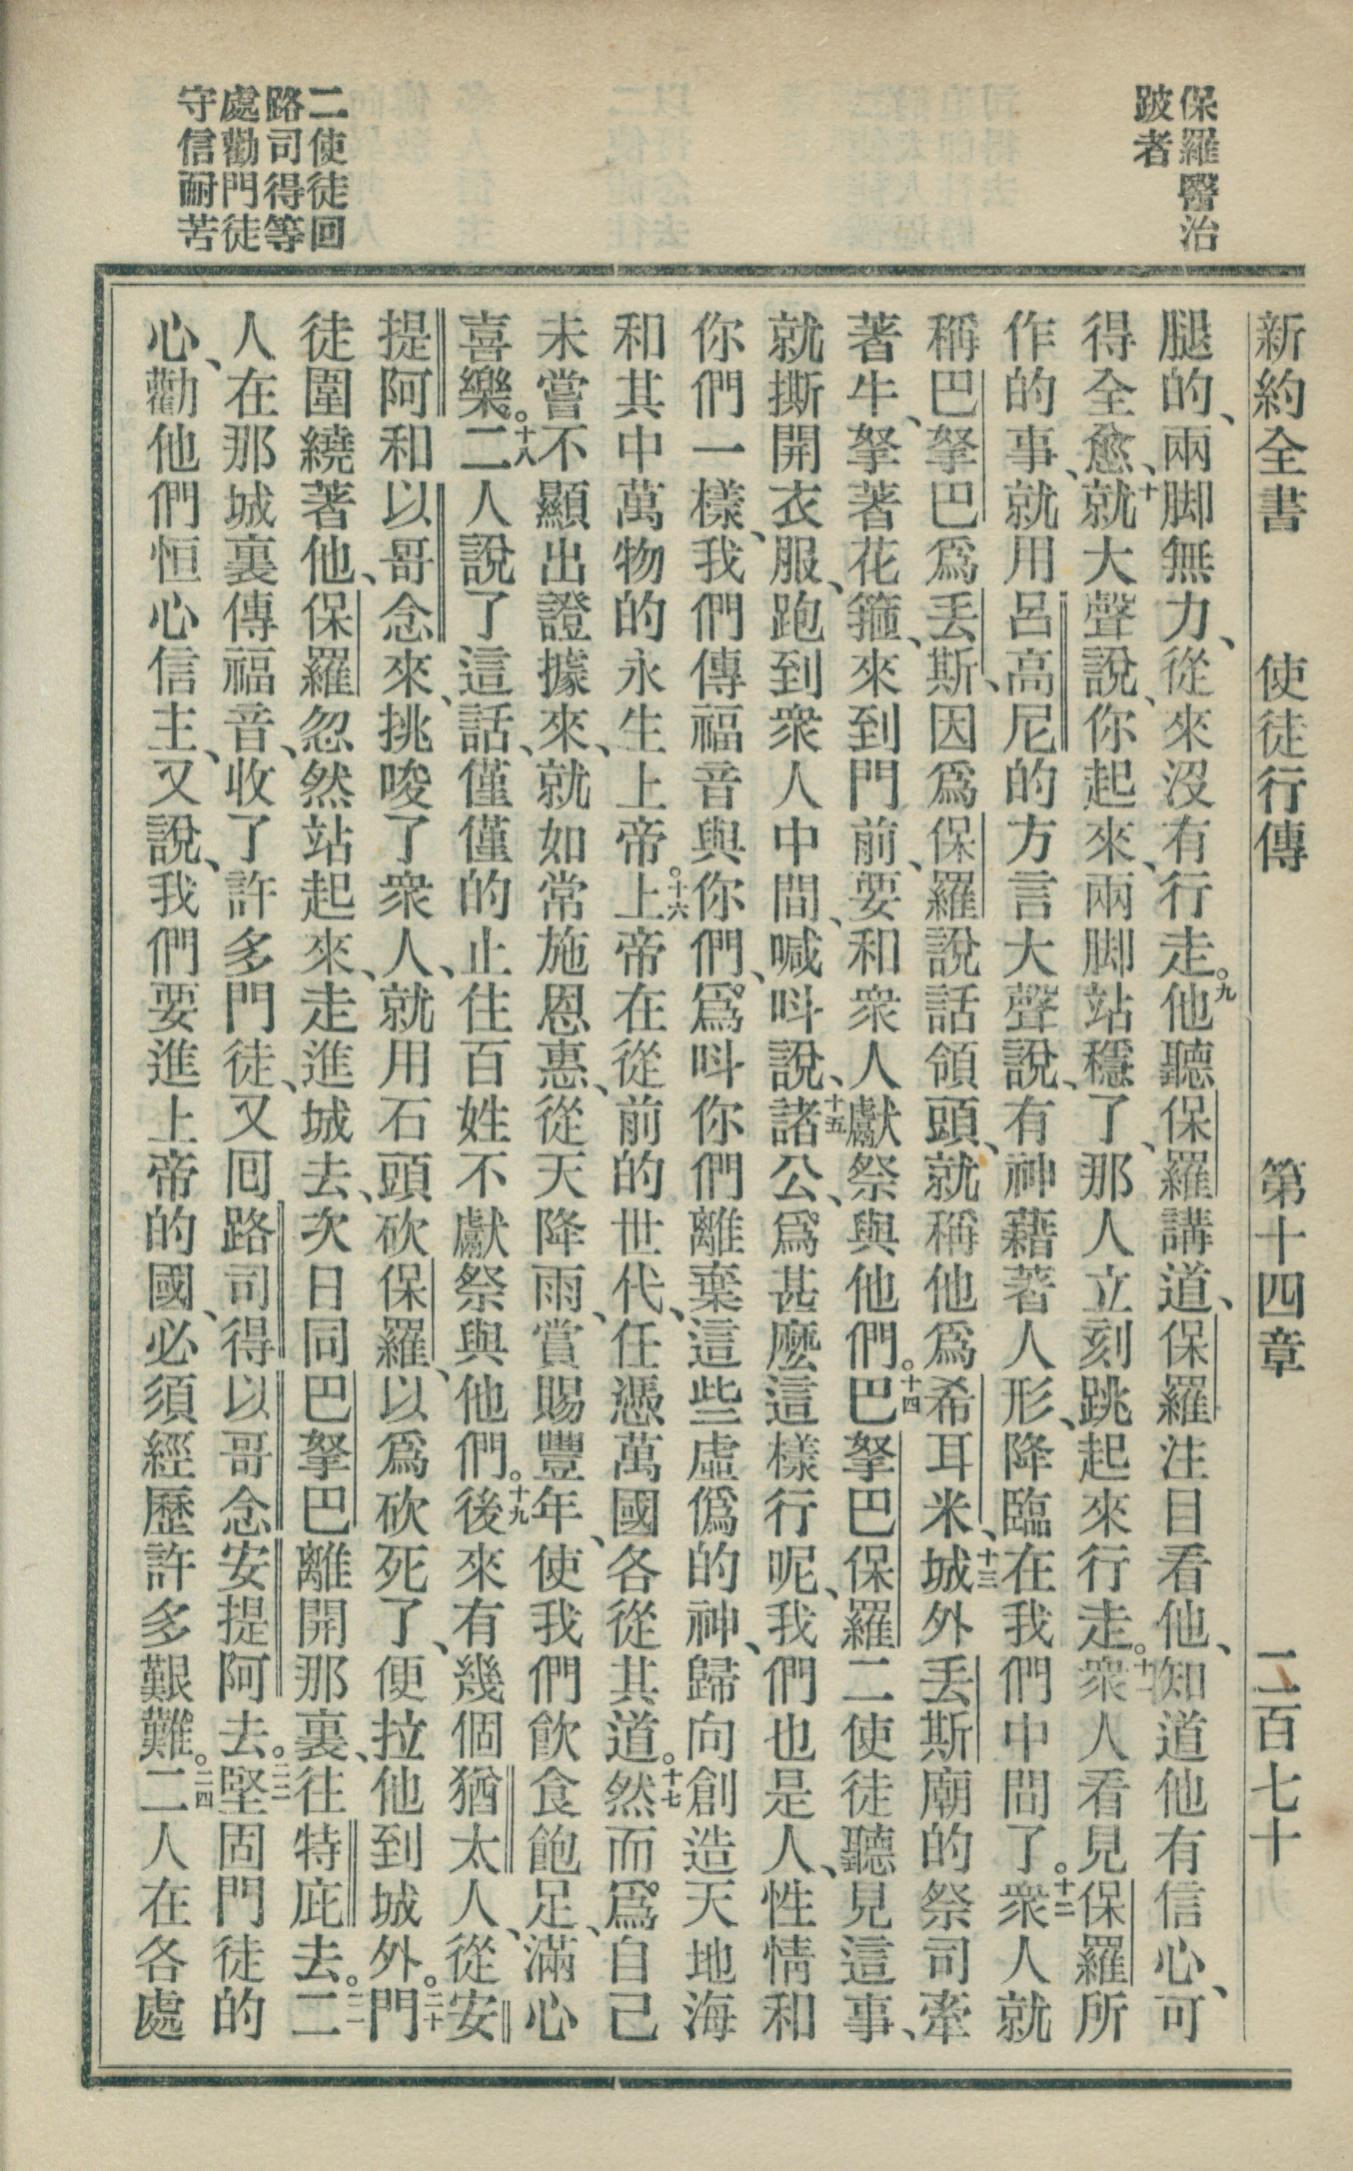 保羅醫治
跛者
二使徒回
路司得等
處勸門徒
守信耐苦
新約全書 使徒行傳 第十四章 二百七十
腿的、兩脚無力、從來沒有行走。九他聽保羅講道、保羅注目看他、知道他有信心、可
得全愈、十就大聲說、你起來、兩脚站穩了、那人立刻跳起來行走。十一衆人看見保羅所
作的事、就用呂高尼的方言大聲說、有神藉著人形、降臨在我們中間了。十二衆人就
稱巴拏巴爲丢斯、因爲保羅說話領頭、就稱他爲希耳米、十三城外丢斯廟的祭司牽
著牛、拏著花箍、來到門前、要和衆人獻祭與他們。十四巴拏巴保羅二使徒聽見這事、
就撕開衣服、跑到衆人中間、喊呌說、十五諸公、爲甚麽這樣行呢、我們也是人、性情和
你們一樣、我們傳福音與你們、爲呌你們離棄這些虛僞的神、歸向創造天地海
和其中萬物的永生上帝。十六上帝在從前的世代、任憑萬國各從其道。十七然而爲自己
未嘗不顯出證據來、就如常施恩惠、從天降雨、賞賜豐年、使我們飮食飽足、滿心
喜樂。十八二人說了這話、僅僅的止住百姓不獻祭與他們。十九後來有幾個猶太人、從安
提阿和以哥念來、挑唆了衆人、就用石頭砍保羅、以爲砍死了、便拉他到城外。二十門
徒圍繞著他、保羅忽然站起來、走進城去、次日同巴拏巴離開那裏、往特庇去。二一二
人在那城裏傳福音、收了許多門徒、又囘路司得以哥念安提阿去。二二堅固門徒的
心、勸他們恒心信主、又說、我們要進上帝的國、必須經歷許多艱難。二四二人在各處